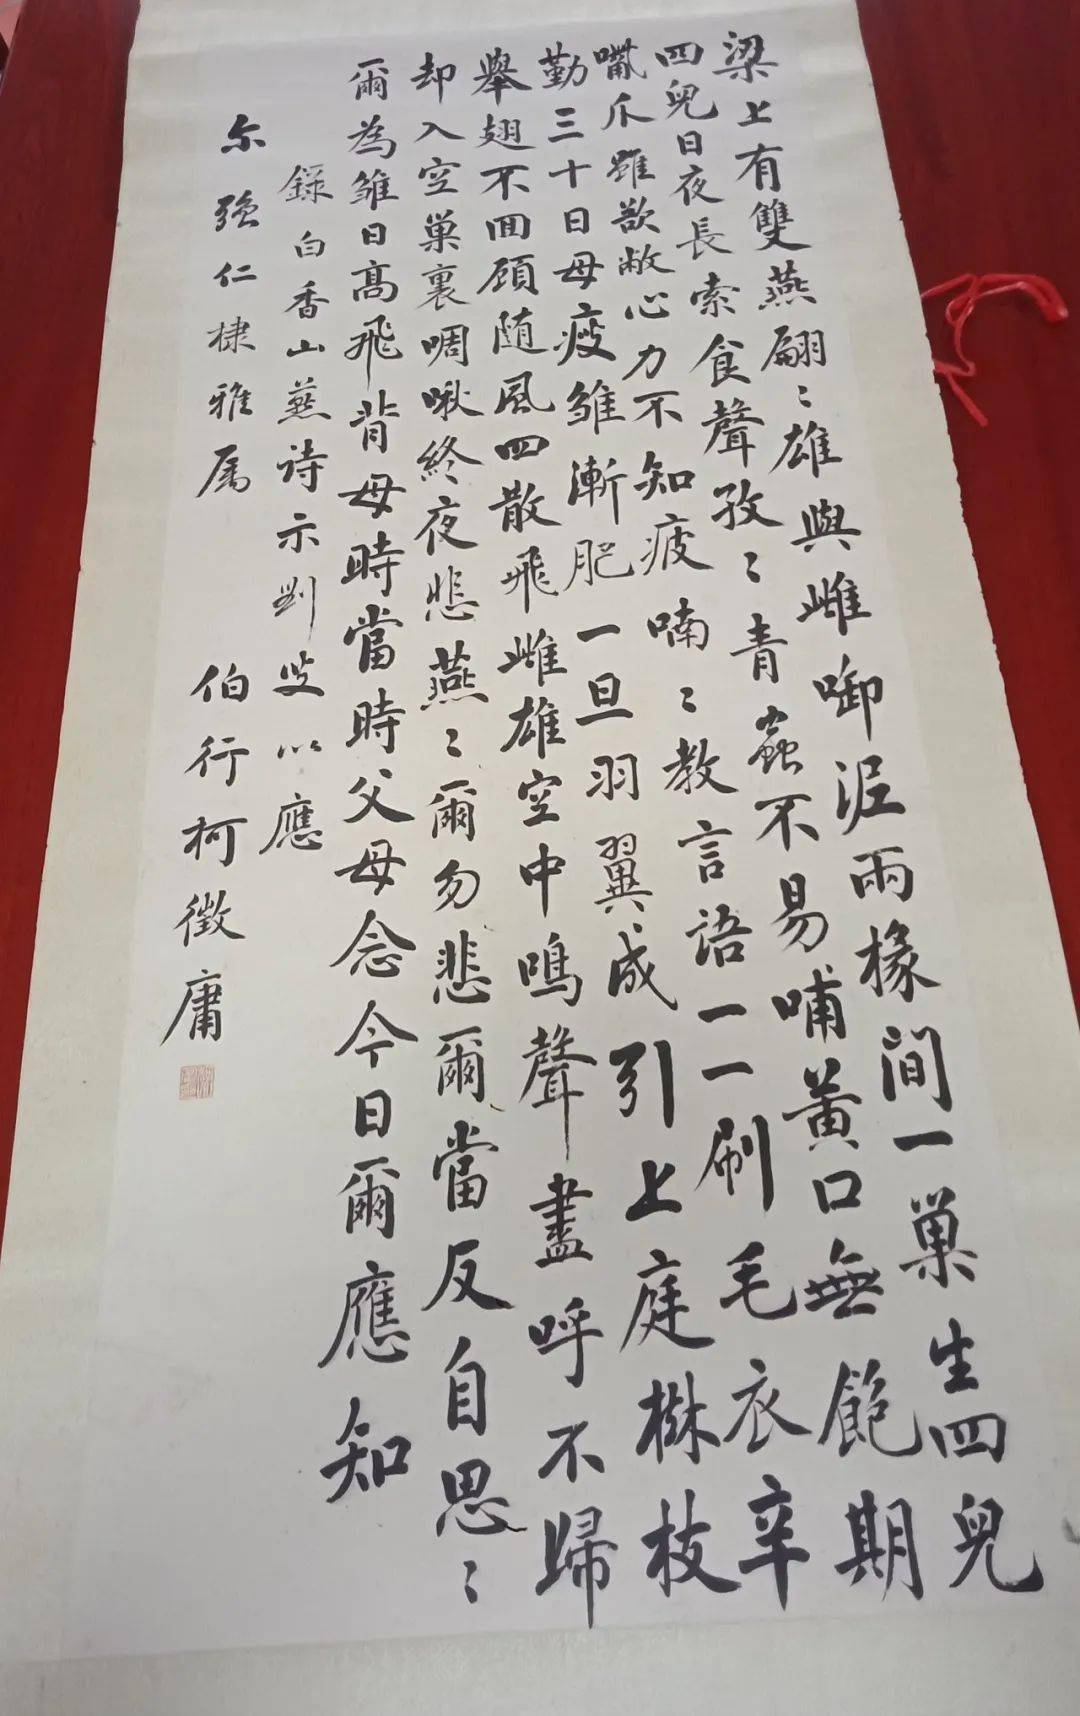 梁上有雙燕翩〻雄與雌啣泥兩椽間一巢生四兒
四兒日夜長索食聲孜〻青蟲不易哺黃口無飽期
嘴爪雖欲敝心力不知疲喃〻教言語一一刷毛衣辛
勤三十日母瘦雛漸肥一旦羽翼成引上庭樹枝
舉翅不回顧随風四散飛雌雄空中鳴聲盡呼不歸
却入空巢裏啁啾終夜悲燕〻爾勿悲爾當反自思〻
爾為雛日高飛背母時當時父母念今日爾應知
錄白香山燕詩示劉叟以應
尓強仁棣雅属 伯行柯徵庸